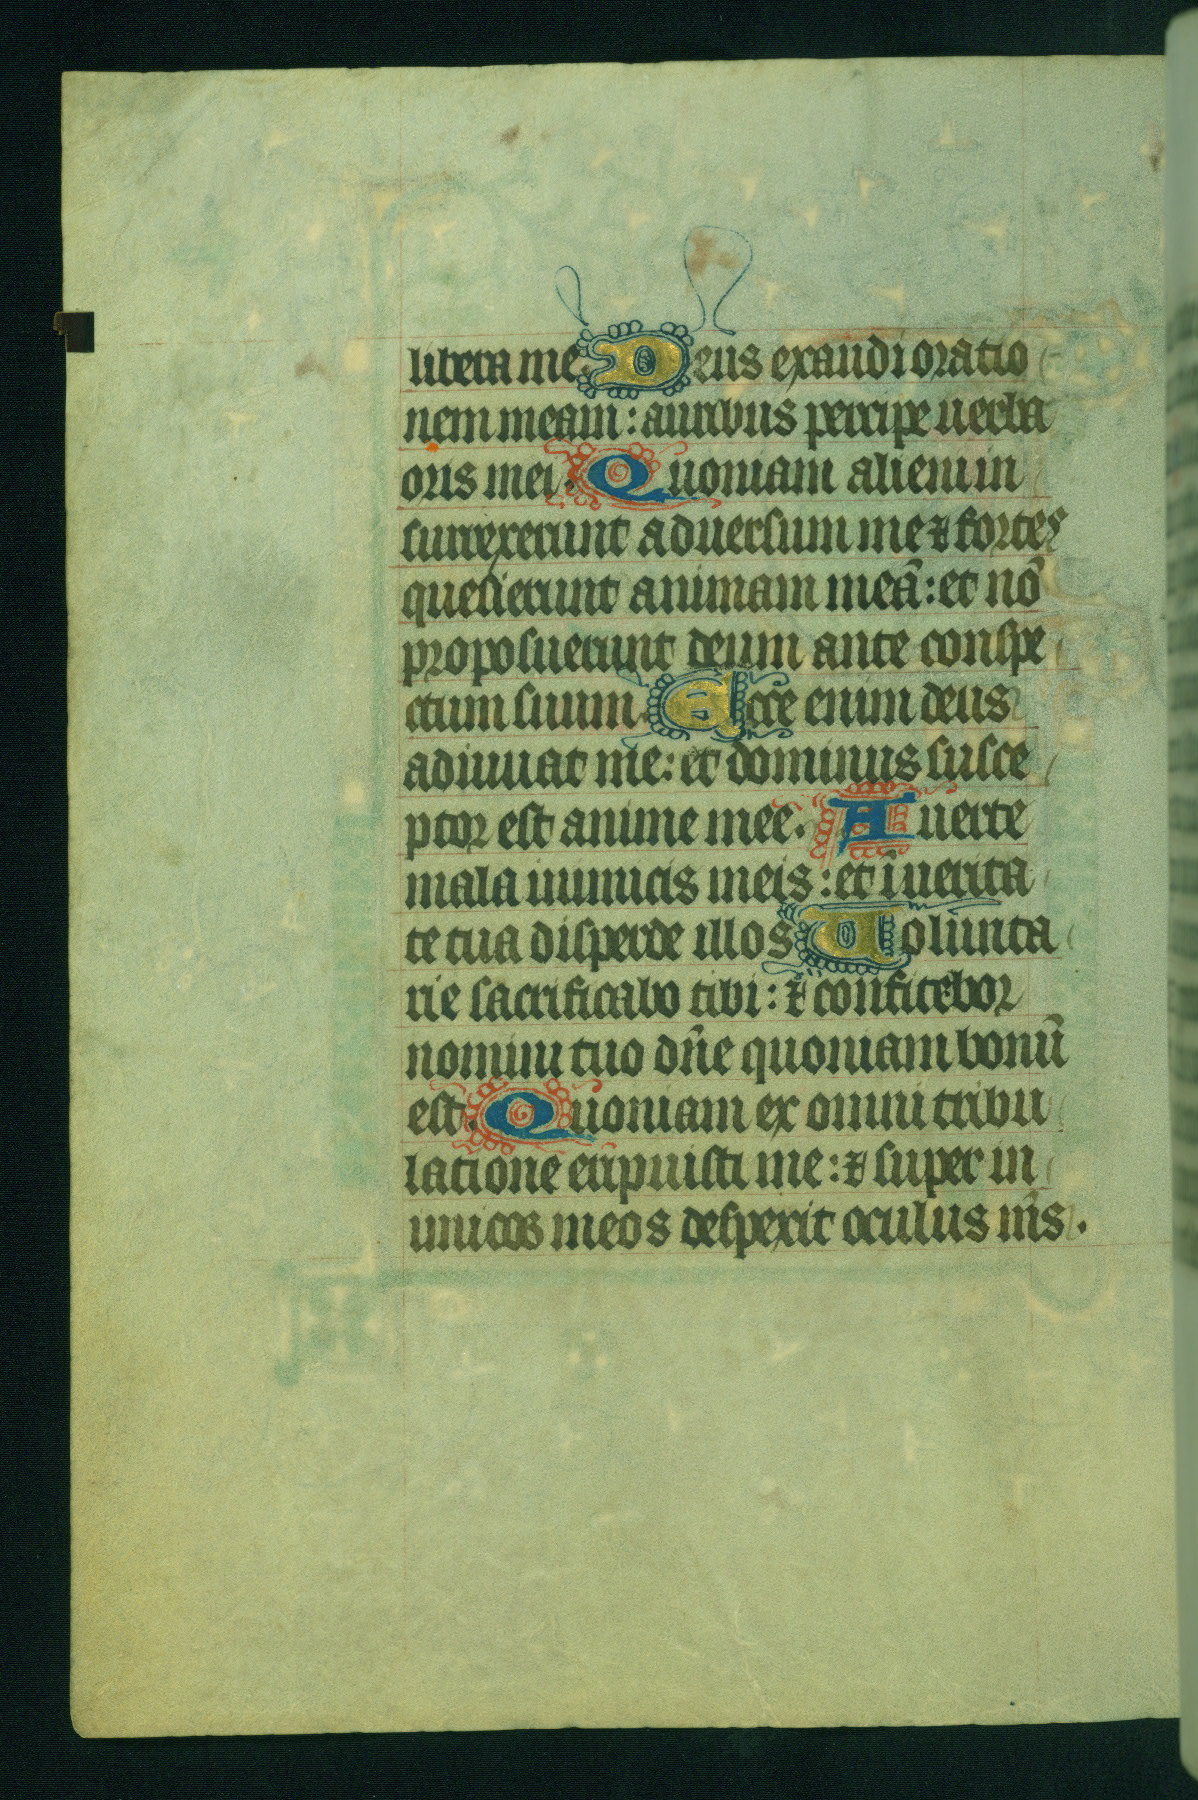 libera me. Deus exaudi oratio
nem meam: auribus percipe uerba
oris mei. Quoniam alieni in
surrexerunt aduersum me ⁊ fortes
quesierunt animam meā: et nō
proposuerunt deum ante conspe
ctum suum. Ecce enim deus
adiuuat me: et dominus susce
ptor est anime mee. Auerte
mala inimicis meis: et ī uerita
te tua disperde illos. Uolunta
rie sacrificabo tibi: ⁊ confitebor
nomini tuo dn̄e quoniam bonū
est. Quoniam ex omni tribu
latione eripuisti me: ⁊ super in
imicos meos despexit oculus m̄s.